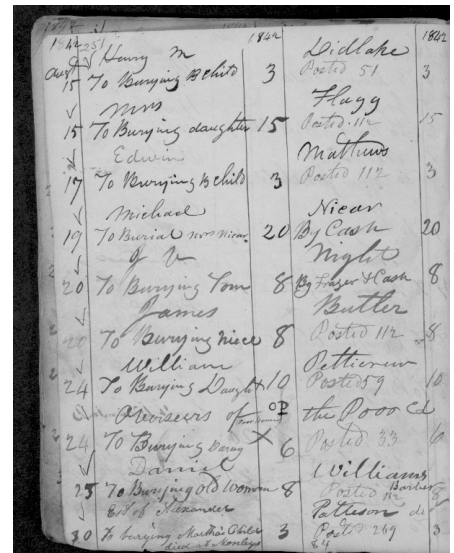 1842 1842 1842
Augt 251 Henry M Didlake
15 To Burying B child 3 Posted 51 3
Mrs Flagg
15 To Burying daughter 15 Posted 112 15
Edwin Mathews
17 To Burying B child 3 Posted 112 3
Michael Nicar
19 To Burial Mrs Nicar 20 By Cash 20
J V Night
20 To Burying Tom 8 By Frazer & Cash 8
James Butler
To Burying niece 8 Posted 112 8
William Pettierew
24 To Burying Daught 10 Posted 59 10
Overseers of OP the Poor Cd
24 To Burying X 6 Posted 33 6
Daniel Williams
25 To Burying Old Women 8 Posted 112 Barber 8
Est of Alexander Patteson
30 To burying Martha's Child 3 Posted 269 3
died at Moseleys 84